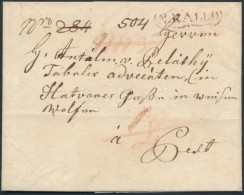 Nro 284 504 KALLO
Herren
H. Antal v.
Tabular advocaten, in
Hatvaner Gasse in weisen
Wolfen
à
Pest